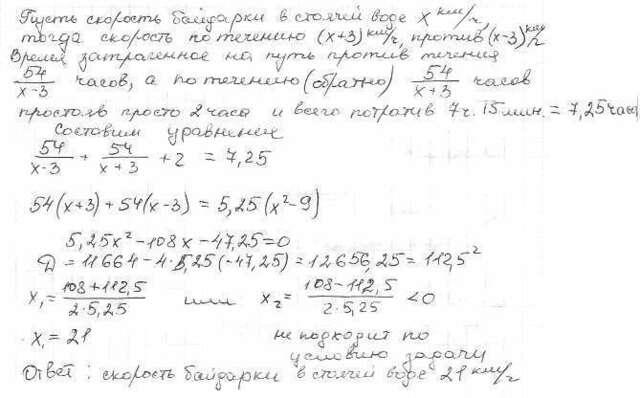 Пусть скорость байдарки в стоячей воде x км/ч,
тогда скорость по течению (x+3) км/ч, против (x-3) км/ч
Время затраченное на путь против течения
54/(x-3) часов, а по течению (обратно) 54/(x+3) часов
простояв просто 2 часа и всего потратив 7 ч. 15 мин. = 7,25 часы
Составим уравнение
54/(x-3) + 54/(x+3) + 2 = 7,25
54(x+3) + 54(x-3) = 5,25(x²-9)
5,25x² - 108x - 47,25 = 0
D = 11664 - 4·5,25(-47,25) = 12656,25 = 112,5²
x₁ = (108+112,5)/(2·5,25) или x₂ = (108-112,5)/(2·5,25) < 0
x₁ = 21 не подходит по
условию задачи
Ответ: скорость байдарки в стоячей воде 21 км/ч